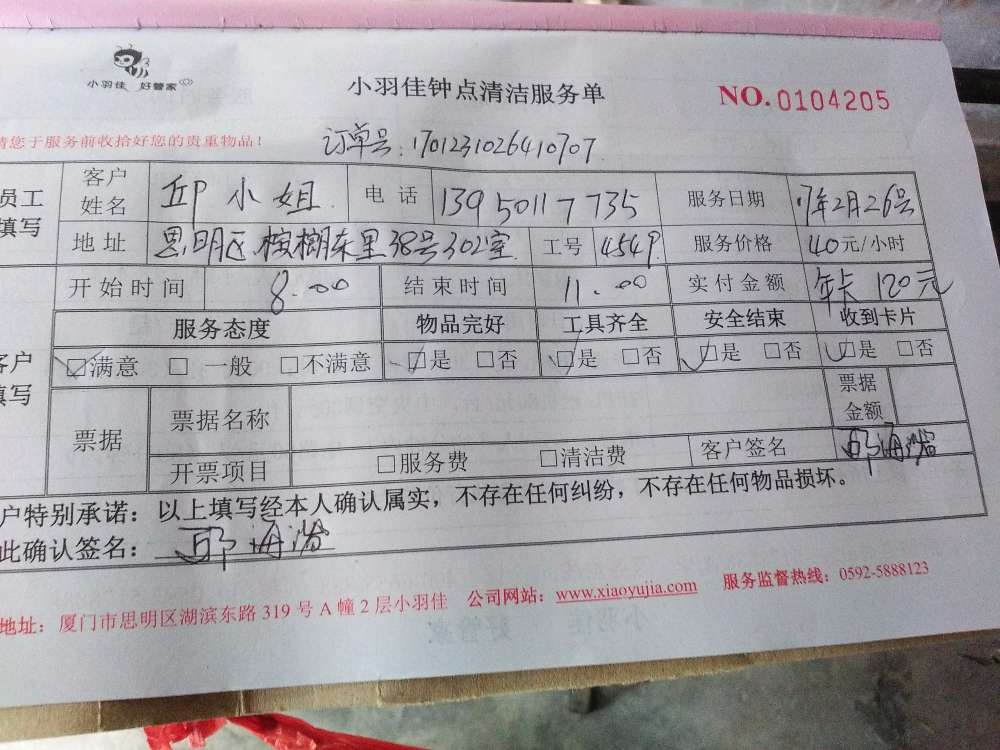 小羽佳 好管家
小羽佳钟点清洁服务单
NO.0104205
请您于服务前收拾好您的贵重物品！
订单号：170123102641 0707
员工填写 客户姓名 邱小姐 电话 13950117735 服务日期 17年2月26号
地址 思明区槟榔东里38号302室 工号 4549 服务价格 40元/小时
开始时间 8.00 结束时间 11.00 实付金额 年卡 120元
客户填写 服务态度 物品完好 工具齐全 安全结束 收到卡片
☑满意 □一般 □不满意 ☑是 □否 ☑是 □否 ☑是 □否 ☑是 □否
票据 票据名称 票据金额
开票项目 □服务费 □清洁费 客户签名 邱海
户特别承诺：以上填写经本人确认属实，不存在任何纠纷，不存在任何物品损坏。
此确认签名：邱海
地址：厦门市思明区湖滨东路319号A幢2层小羽佳 公司网站：www.xiaoyujia.com 服务监督热线：0592-5888123